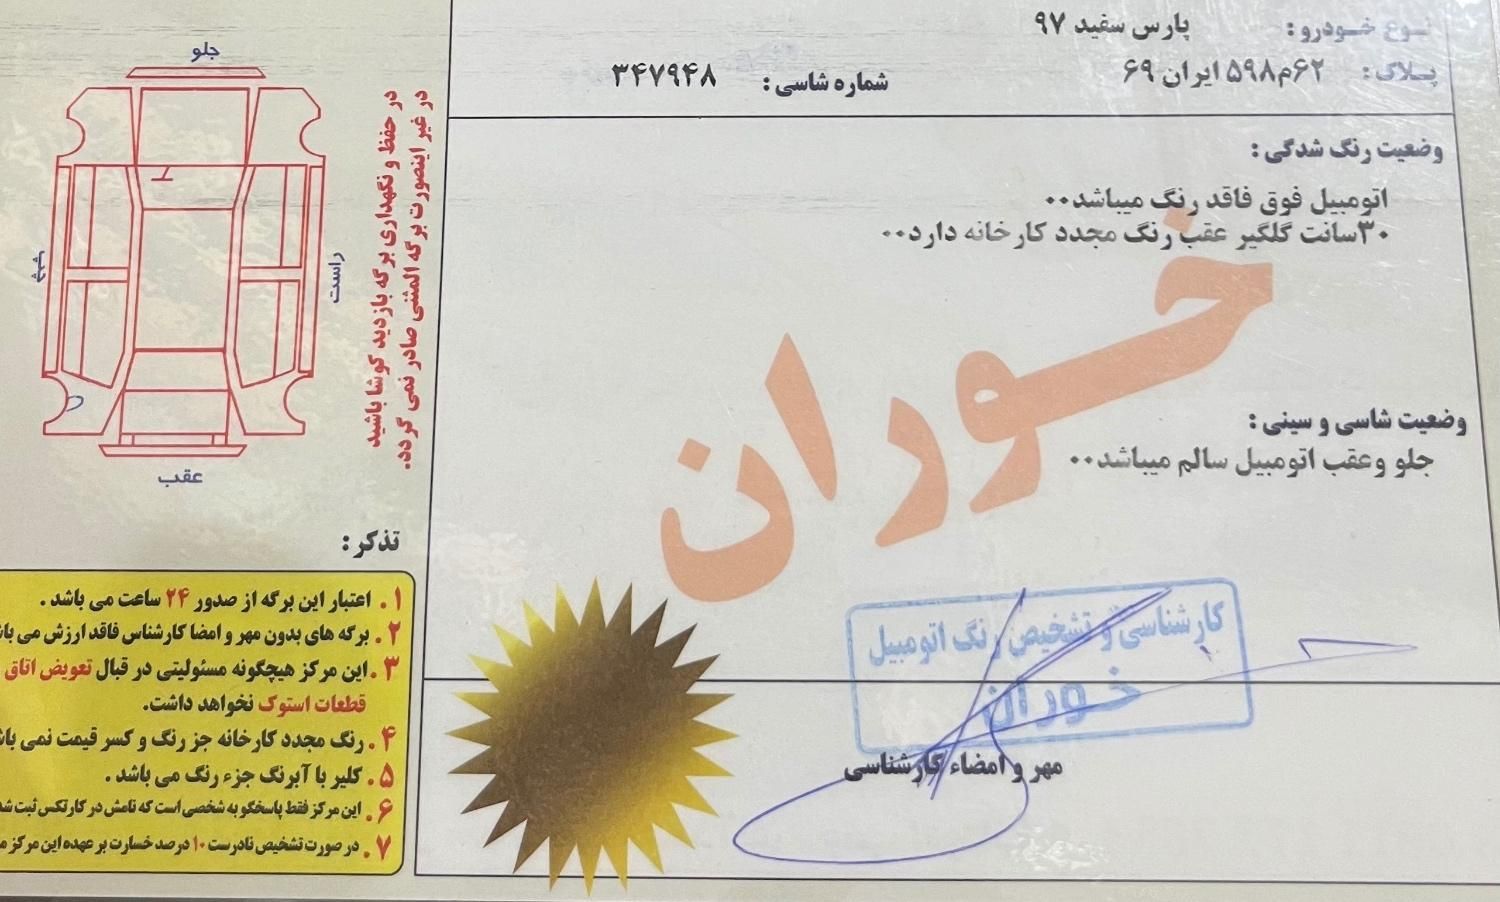 نوع خودرو: پارس سفید ۹۷
پلاک: ۶۲م۵۹۸ ایران ۶۹
شماره شاسی: ۳۴۷۹۴۸
وضعیت رنگ شدگی:
اتومبیل فوق فاقد رنگ میباشد۰۰
۳۰سانت گلگیر عقب رنگ مجدد کارخانه دارد۰۰
خوران
وضعیت شاسی و سینی:
جلو وعقب اتومبیل سالم میباشد۰۰
کارشناسی و تشخیص رنگ اتومبیل
خوران
مهر و امضاء کارشناسی
جلو
راست
چپ
عقب
در حفظ و نگهداری برگه بازدید کوشا باشید
در غیر اینصورت برگه المثنی صادر نمی گردد.
تذکر:
۱. اعتبار این برگه از صدور ۲۴ ساعت می باشد.
۲. برگه های بدون مهر و امضا کارشناس فاقد ارزش می
۳. این مرکز هیچگونه مسئولیتی در قبال تعویض اتاق
قطعات استوک نخواهد داشت.
۴. رنگ مجدد کارخانه جز رنگ و کسر قیمت نمی
۵. کلیر با آبرنگ جزء رنگ می باشد.
۶. این مرکز فقط پاسخگو به شخصی است که نامش در کارتکس ثبت
۷. در صورت تشخیص نادرست ۱۰ درصد خسارت بر عهده این مرکز